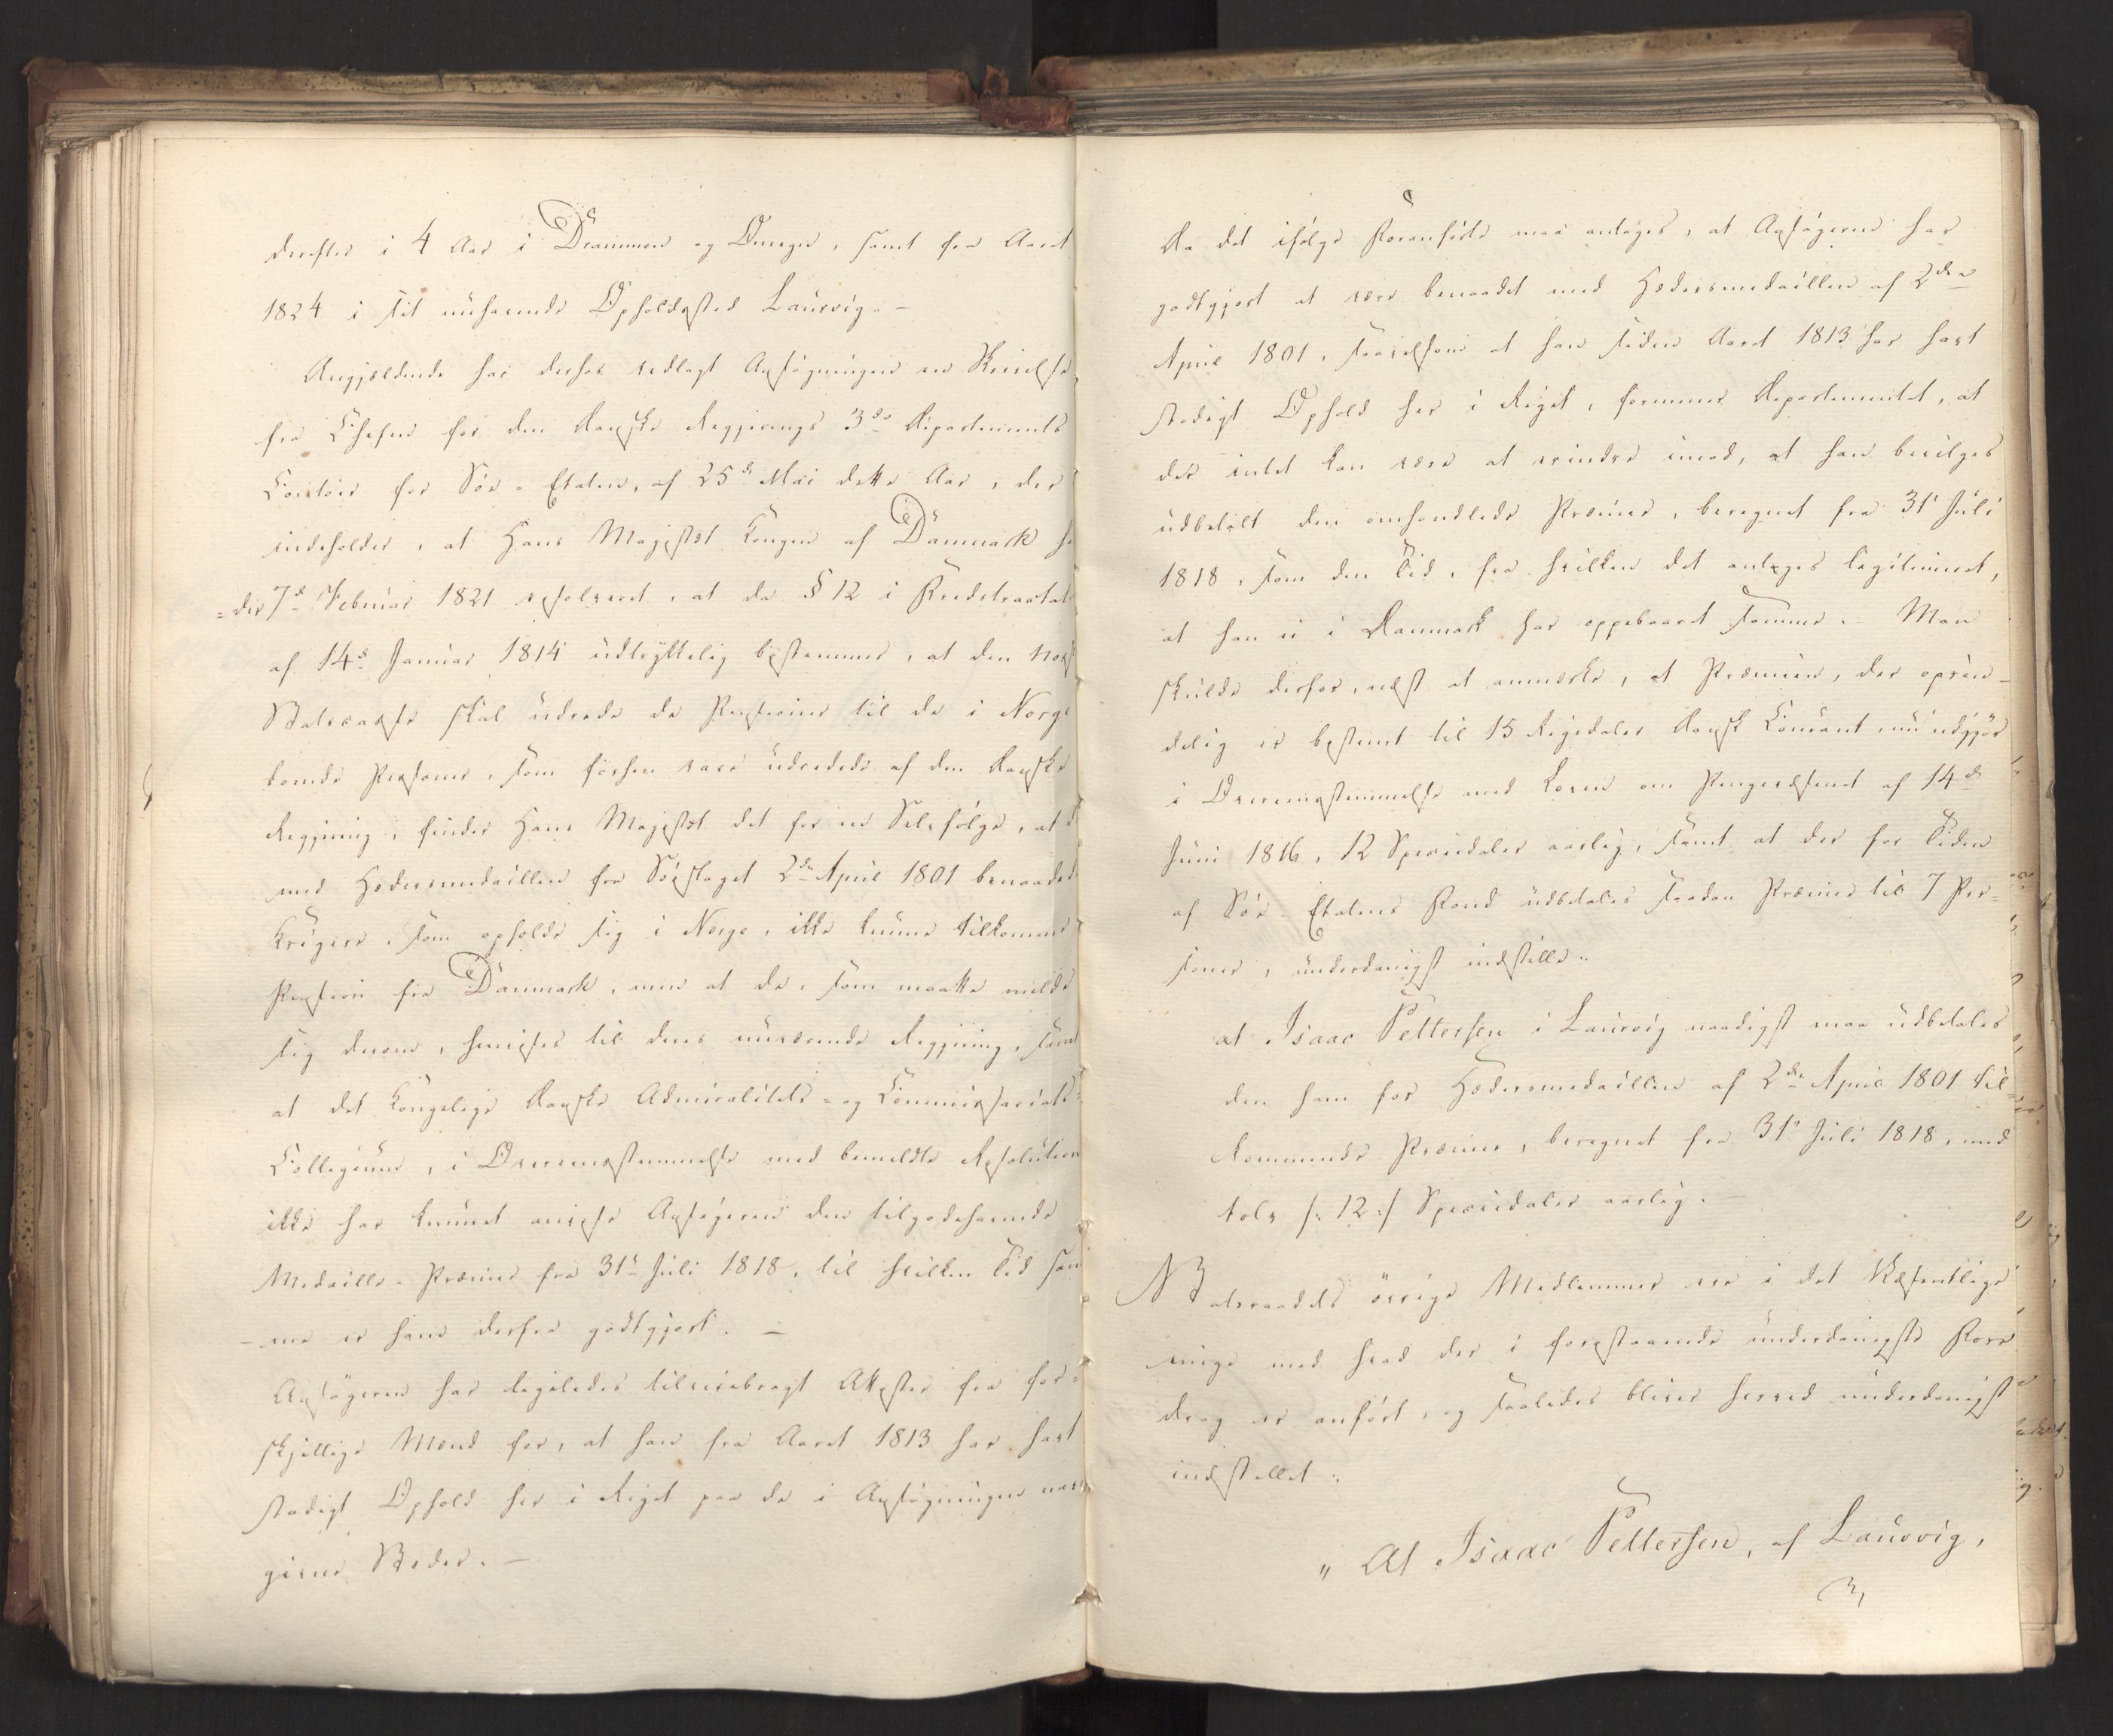 derefter i 4 Aar i Drammen og Omegn, samt fra Aaret
1824 i sit nuhavende Opholdssted Laurvig. –
Angjeldende har derhos vedlagt Ansøgningen en Skrivelse
fra Chefen for den danske Regjerings 3de Departements
Contoir for Søe-Etaten, af 25de Mai dette Aar, der
indeholder, at Hans Majestæt Kongen af Danmark
7de Februar 1821 resolveret, at da § 12 i Fredstractaten
af 14de Januar 1814 udtrykkelig bestemmer, at den norske
Statscasse skal udrede de Pensioner til de i Norge
boende Personer, som forhen vare udredede af den danske
Regjering, finder Hans Majestæt det for en Selvfølge, at de
med Hædersmedaillen fra Søeslaget 2den April 1801 benaadede
Krigere, som opholde sig i Norge, ikke kunne tilkomme
Pension fra Danmark, men at de, som maatte melde
sig derom, henvises til deres nuværende Regjering, samt
at det kongelige danske Admiralitets- og Commissariats-
Collegium, i Overensstemmelse med bemeldte Resolution
ikke har kunnet anvise Ansøgeren den tilgodehavende
Medaille-Præmie fra 31te Juli 1818, til hvilken Tid sam
-me er ham derfra godtgjort. –
Ansøgeren har ligeledes tilveiebragt Attester fra for-
skjellige Mænd for, at han fra Aaret 1813 har havt
stadigt Ophold her i Riget paa de i Ansøgningen an-
givne Steder. –
Da det ifølge Foranførte maa antages, at Ansøgeren har
godtgjort at være benaadet med Hædersmedaillen af 2den
April 1801, saavelsom at han siden Aaret 1813 har havt
stadigt Ophold her i Riget, formener Departementet, at
der intet kan være at erindre imod, at han bevilges
udbetalt den omhandlede Præmie, beregnet fra 31te Juli
1818, som den Tid, fra hvilken det antages legitimeret,
at han ei i Danmark har oppebaaret samme. – Man
skulde derfor, næst at anmærke, at Præmien, der oprin-
delig er bestemt til 15 Rigsdaler dansk Courant, nu udgjør
i Overensstemmelse med Loven om Pengevæsenet af 14de
Juni 1816, 12 Speciedaler aarlig, samt at der for Tiden
af Søe-Etatens Fond udbetales saadan Præmie til 7 Per-
soner, underdanigst indstille:
at Isaac Pettersen i Laurvig naadigst maa udbetales
den ham for Hædersmedaillen af 2den April 1801 til-
kommende Præmie, beregnet fra 31te Juli 1818, med
tolv /: 12 :/ Speciedaler aarlig. –
Statsraadets øvrige Medlemmer ere i det Væsentlige
enige med hvad der i forestaaende underdanigste Fore
drag er anført, og saaledes bliver herved underdanigst
indstillet:
„At Isaac Pettersen, af Laurvig,